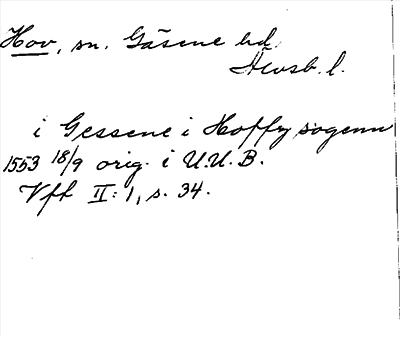 Hov, sn. Gäsene hd.
Älvsb. l.
i Gessene i Hoffz sogenn
1553 18/9 orig. i U.U.B.
Vfh II:1, s. 34.